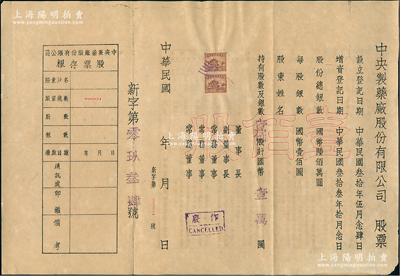 上海陽明拍賣
中央製藥廠股份有限公司 股票
設立登記日期 中華民國叁拾年伍月念肆日
增資登記日期 中華民國叁拾叁年拾月念日
股份總銀數 國幣陸佰萬圓
每股銀數 國幣壹佰圓
股東姓名
持有股數及銀數 股計國幣 壹萬 圓
董事長
副董事長
常務董事
常務董事
常務董事
作廢
CANCELLED
中華民國 年 月 日
新字第零玖叁肆號
中央製藥廠股份有限公司
股票存根
股東姓名
股數
銀數
年 月 日
通訊處
備考